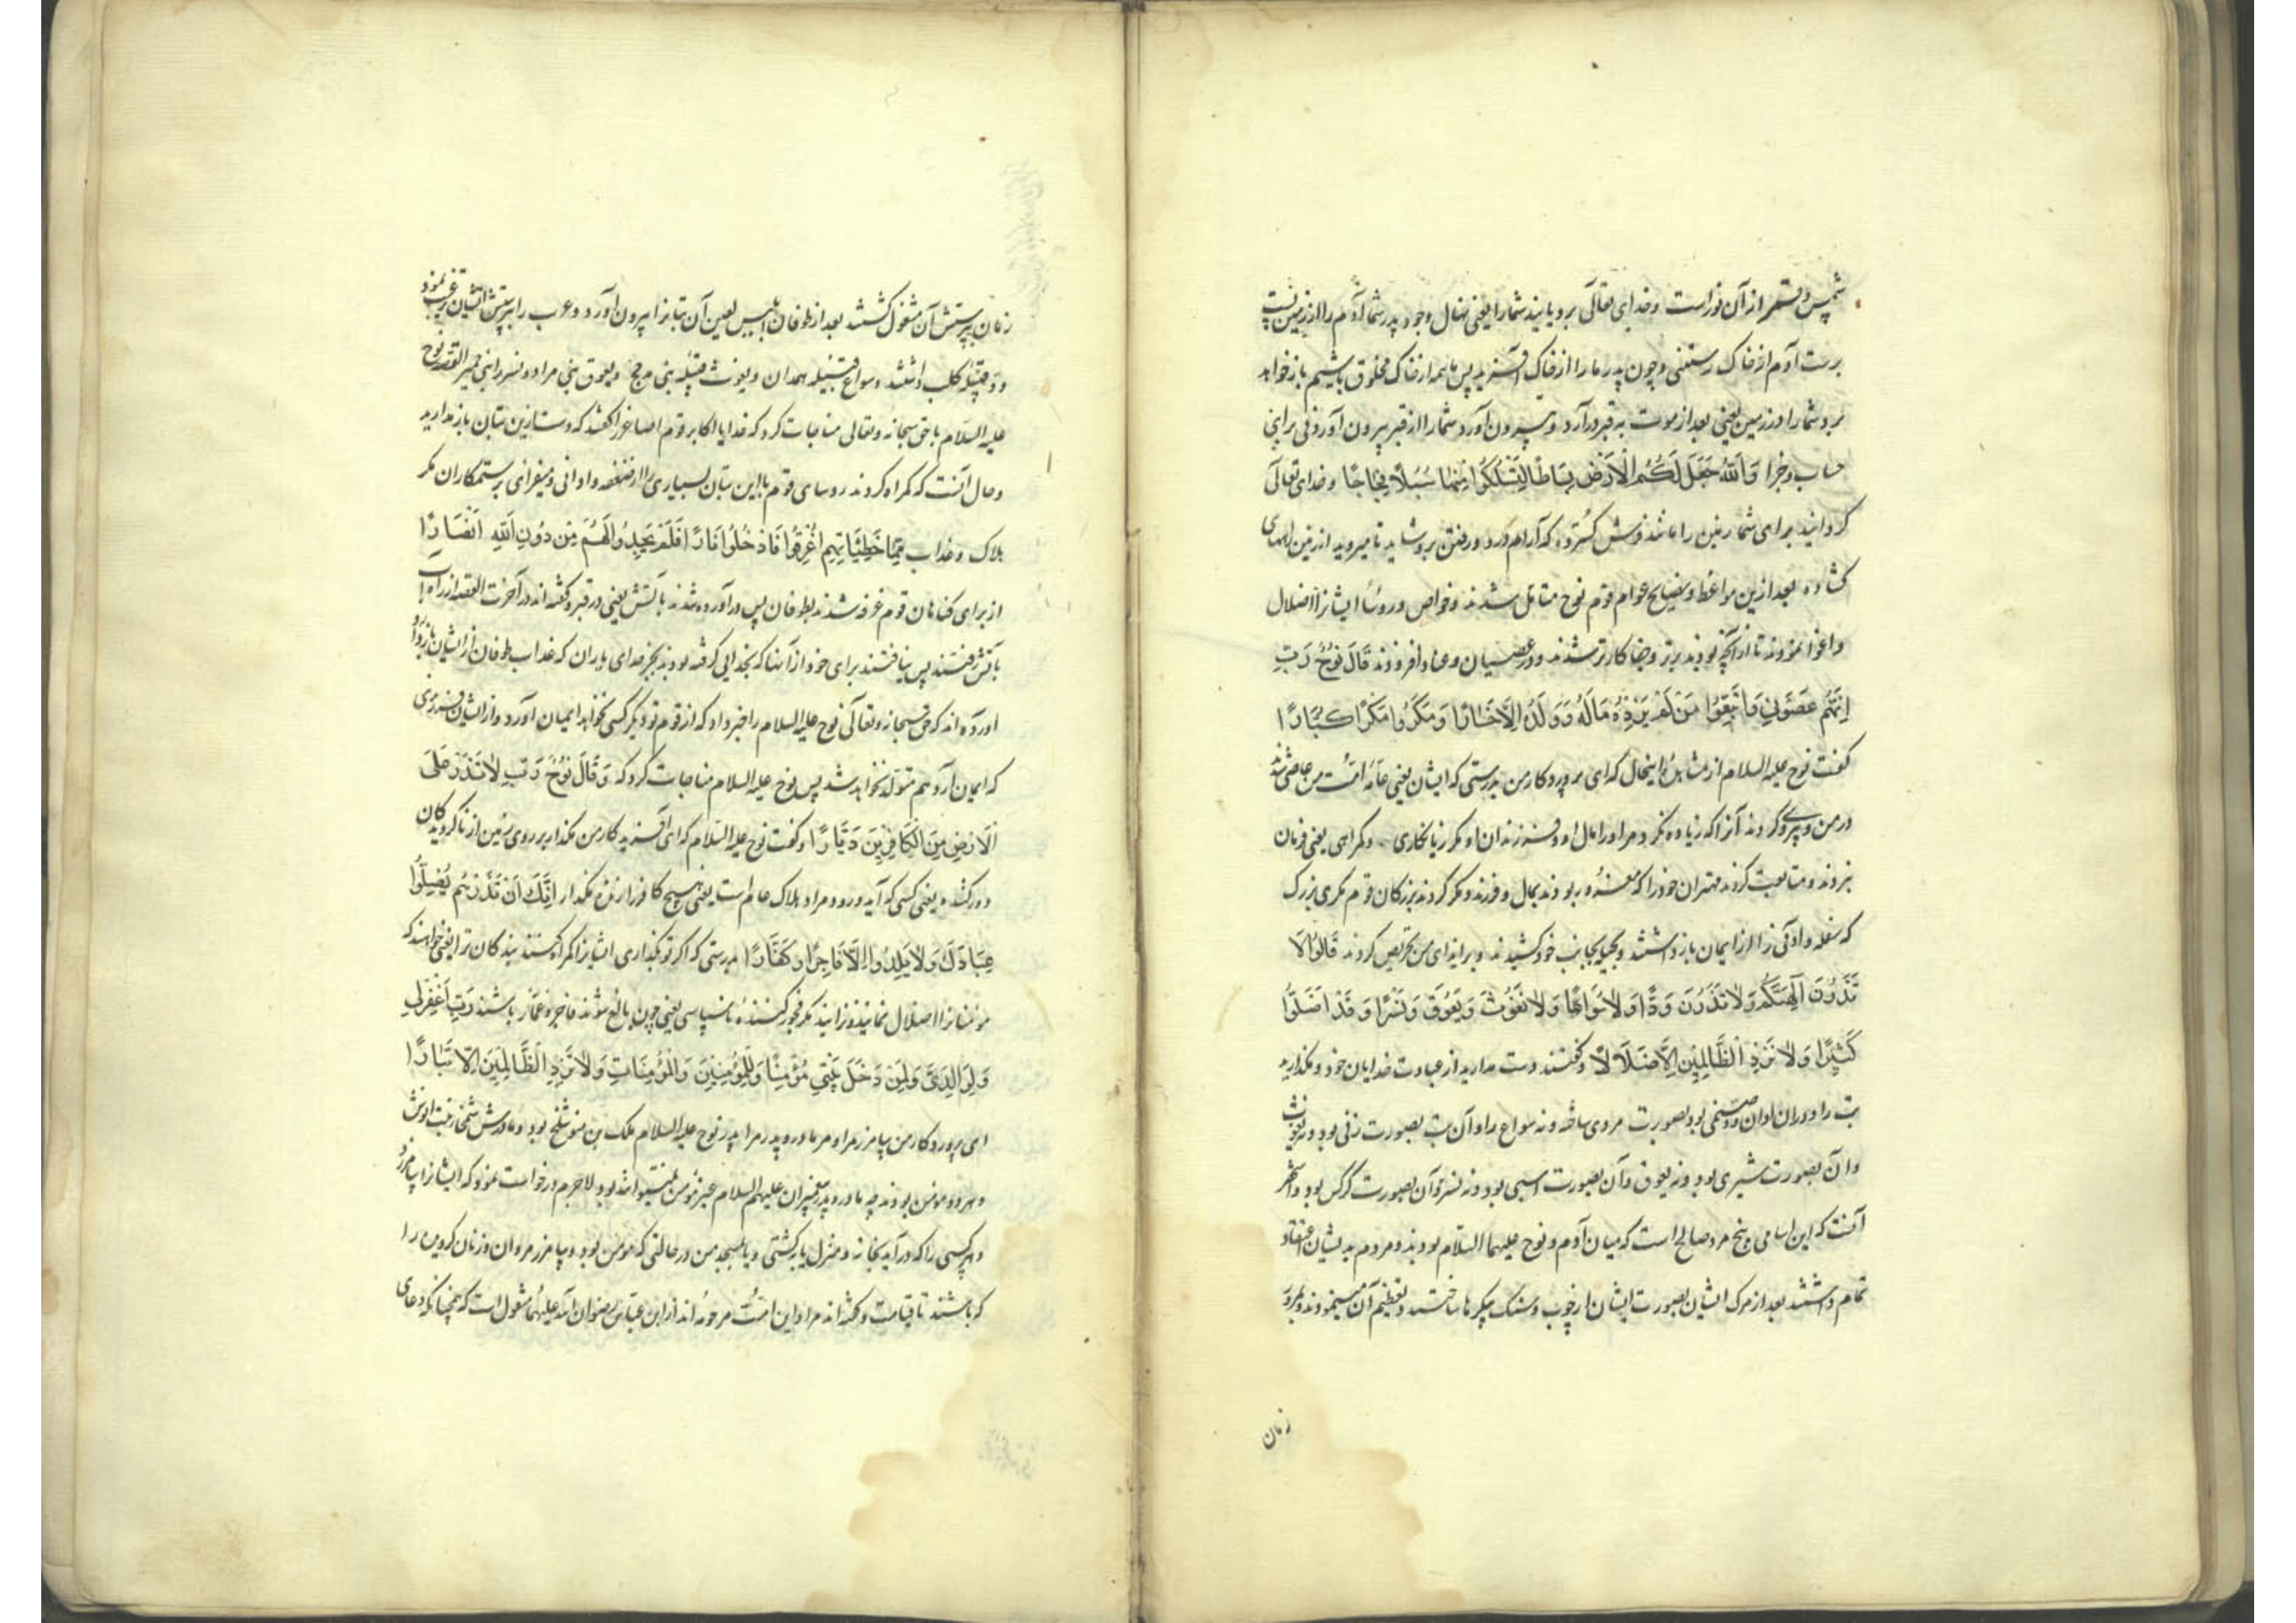 شمس و قمر از آن نور است و خدای تعالی برویانید شما را یعنی نهال وجود پدر شما آدم را از زمین پست
برست آدم از خاک رستنی و چون پدر ما را از خاک آفرید پس ما همه از خاک مخلوق باشیم باز خواهد
برد شما را در زمین یعنی بعد از موت به قبر درآرد و بیرون آورد شما را از قبر بیرون آوردنی برای
حساب و جزا وَاللَّهُ جَعَلَ لَكُمُ الْأَرْضَ بِسَاطًا لِتَسْلُكُوا مِنْهَا سُبُلًا فِجَاجًا و خدای تعالی
گردانید برای شما زمین را مانند فرش گسترده که آرام و رفتن برو شاید تا میروید از زمین راههای
کشاده بعد ازین مواعظ و نصایح عوام قوم نوح متامل شدند و خواص و روسا ایشانرا اضلال
و اغوا نمودند تا از آنچه بودند بدتر و جفا کارتر شدند و در عصیان و عناد افزودند قَالَ نُوحٌ رَبِّ
إِنَّهُمْ عَصَوْنِي وَاتَّبَعُوا مَنْ لَمْ يَزِدْهُ مَالُهُ وَوَلَدُهُ إِلَّا خَسَارًا وَمَكَرُوا مَكْرًا كُبَّارًا
گفت نوح علیه السلام از مشاهده اینحال که ای پروردکار من بدرستی که ایشان یعنی عامه امت من عاصی شدند
در من و پیروی کردند آنرا که زیاده نکرد مر او را مال او و فرزندان او مکر زیانکاری و گمراهی یعنی فرمان
نبردند و متابعت کردند مهتران خود را که مغرور بودند بمال و فرزند و مکر کردند بزرکان قوم مکری بزرک
که سفله و ادانی را از ایمان باز داشتند و بحیله بجانب خود کشیدند و بر ایذای من تحریص کردند قَالُوا لَا
تَذَرُنَّ آلِهَتَكُمْ وَلَا تَذَرُنَّ وَدًّا وَلَا سُوَاعًا وَلَا يَغُوثَ وَيَعُوقَ وَنَسْرًا وَقَدْ أَضَلُّوا
كَثِيرًا وَلَا تَزِدِ الظَّالِمِينَ إِلَّا ضَلَالًا و گفتند دست مدارید از عبادت خدایان خود و مگذارید
بت را در آن اوان ود صنمی بود بصورت مردی ساخته و نه سواع را و آن بت بصورت زنی بود و نه یغوث
و آن بصورت شیری بود و نه یعوق و آن بصورت اسبی بود و نه نسر و آن بصورت کرکس بود و اشهر
آنست که این اسامی پنج مرد صالح است که میان آدم و نوح علیهما السلام بودند و مردم بدیشان اعتقاد
تمام داشتند بعد از مرک ایشان بصورت ایشان از چوب و سنک پیکرها ساختند و تعظیم آن مینمودند و بمرور
زمان
زمان بپرستش آن مشغول کشتند بعد از طوفان ابلیس لعین آن بتانرا بیرون آورد و عرب را بپرستش ایشان ترغیب نمود
ود قبیله کلب داشتند و سواع قبیله همدان و یغوث قبیله بنی مذحج و یعوق بنی مراد و نسر را بنی حمیر القصه نوح
علیه السلام با حق سبحانه و تعالی مناجات کرد که خدایا اکابر قوم اصاغر را گفتند که دست ازین بتان باز مدارید
و حال آنست که گمراه کردند روسای قوم باین بتان بسیاری را از ضعفه و ادانی و میفزای بر ستمکاران مکر
هلاک و عذاب مِمَّا خَطِيئَاتِهِمْ أُغْرِقُوا فَأُدْخِلُوا نَارًا فَلَمْ يَجِدُوا لَهُمْ مِنْ دُونِ اللَّهِ أَنْصَارًا
از برای گناهان قوم غرقه شدند بطوفان پس درآورده شدند بآتش یعنی در قبر و گفته اند در آخرت القصه از راه آب
بآتش رفتند پس نیافتند برای خود از آنها که بخدایی گرفته بودند بجز خدای یاران که عذاب طوفان از ایشان باز دارد
آورده اند که حق سبحانه و تعالی نوح علیه السلام را خبر داد که از قوم تو دیگر کسی نخواهد ایمان آورد و از ایشان فرزندی
که ایمان آرد هم متولد نخواهد شد پس نوح علیه السلام مناجات کرد که وَقَالَ نُوحٌ رَبِّ لَا تَذَرْ عَلَى
الْأَرْضِ مِنَ الْكَافِرِينَ دَيَّارًا و گفت نوح علیه السلام که ای آفریدکار من مگذار بر روی زمین از ناگرویدکان
دور کشنده یعنی کسی که آید و رود و مراد هلاک عام است یعنی هیچ کافر را زنده مگذار إِنَّكَ إِنْ تَذَرْهُمْ يُضِلُّوا
عِبَادَكَ وَلَا يَلِدُوا إِلَّا فَاجِرًا كَفَّارًا بدرستی که اگر تو بگذاری ایشانرا گمراه کنند بندکان ترا یعنی خواهند که
مؤمنانرا اضلال نمایند و نزایند مکر فجور کننده ناسپاسی یعنی چون بالغ شوند فاجر و کفار باشند رَبِّ اغْفِرْ لِي
وَلِوَالِدَيَّ وَلِمَنْ دَخَلَ بَيْتِيَ مُؤْمِنًا وَلِلْمُؤْمِنِينَ وَالْمُؤْمِنَاتِ وَلَا تَزِدِ الظَّالِمِينَ إِلَّا تَبَارًا
ای پروردکار من بیامرز مرا و مر مادر و پدر مرا پدر نوح علیه السلام ملک بن متوشلخ بود و مادرش شمخا بنت انوش
و هر دو مومن بودند چه مادر و پدر پیغمبران علیهم السلام غیر مؤمن نمیتواند بود لاجرم درخواست نمود که ایشانرا بیامرزد
و هر کسی را که درآید بخانه و منزل یا بکشتی و یا بمسجد من در حالتی که مؤمن بود و بیامرز مردان و زنان گرویده را
که باشند تا قیامت و گفته اند مراد این امت مرحومه اند از ابن عباس رضوان الله علیهما منقول است که همچنانکه دعای